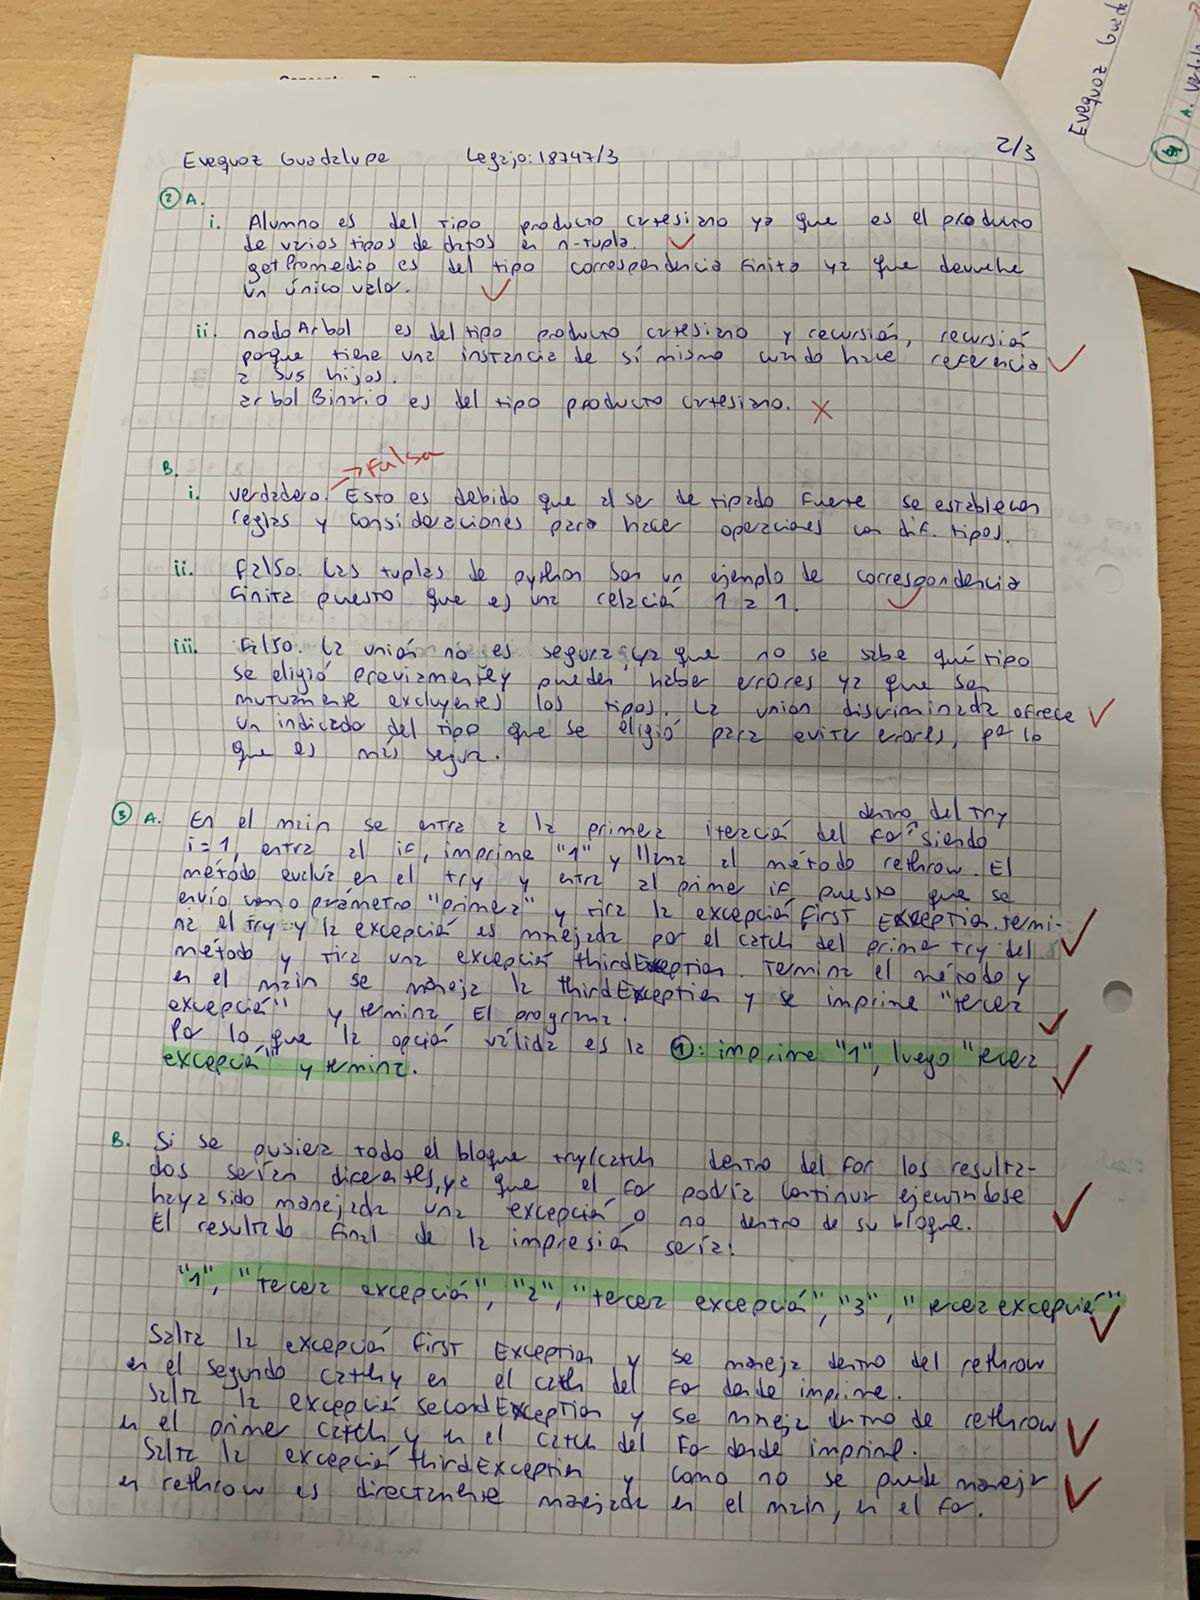 Evequoz Guadalupe Legajo: 18747/3 2/3
② A.
i. Alumno es del tipo producto cartesiano ya que es el producto
de varios tipos de datos en n-tupla.
getPromedio es del tipo correspondencia finita ya que devuelve
un único valor.
ii. nodoArbol es del tipo producto cartesiano y recursión, recursión
porque tiene una instancia de sí mismo cuando hace referencia
a sus hijos.
arbolBinario es del tipo producto cartesiano.
B.
→ Falso
i. verdadero. Esto es debido que al ser de tipado fuerte se establecen
reglas y consideraciones para hacer operaciones con dif. tipos.
ii. Falso. Las tuplas de python son un ejemplo de correspondencia
finita puesto que es una relación 1 a 1.
iii. Falso. La unión no es segura ya que no se sabe qué tipo
se eligió previamente y pueden haber errores ya que son
mutuamente excluyentes los tipos. La unión discriminada ofrece
un indicado del tipo que se eligió para evitar errores, por lo
que es más segura.
③ A. En el main se entra a la primera iteración del for dentro del try siendo
i=1, entra al if, imprime "1" y llama al método rethrow. El
método evalúa en el try y entra al primer if puesto que se
envío como parámetro "primera" y tira la excepción First Exception. termi-
na el try y la excepción es manejada por el catch del primer try del
método y tira una excepción thirdException. Termina el método y
en el main se maneja la thirdException y se imprime "tercer
excepción" y termina el programa.
Por lo que la opción válida es la ①: imprime "1", luego "tercer
excepción" y termina.
B. Si se pusiera todo el bloque try/catch dentro del for los resulta-
dos serían diferentes, ya que el for podría continuar ejecutándose
haya sido manejada una excepción o no dentro de su bloque.
El resultado final de la impresión sería:
"1", "tercer excepción", "2", "tercer excepción", "3", "tercer excepción"
Salta la excepción First Exception y se maneja dentro del rethrow
en el segundo catch y en el catch del for donde imprime.
Salta la excepción secondException y se maneja dentro de rethrow
en el primer catch y en el catch del for donde imprime.
Salta la excepción thirdException y como no se puede manejar
en rethrow es directamente manejada en el main, en el for.
Evequoz Guada
A.